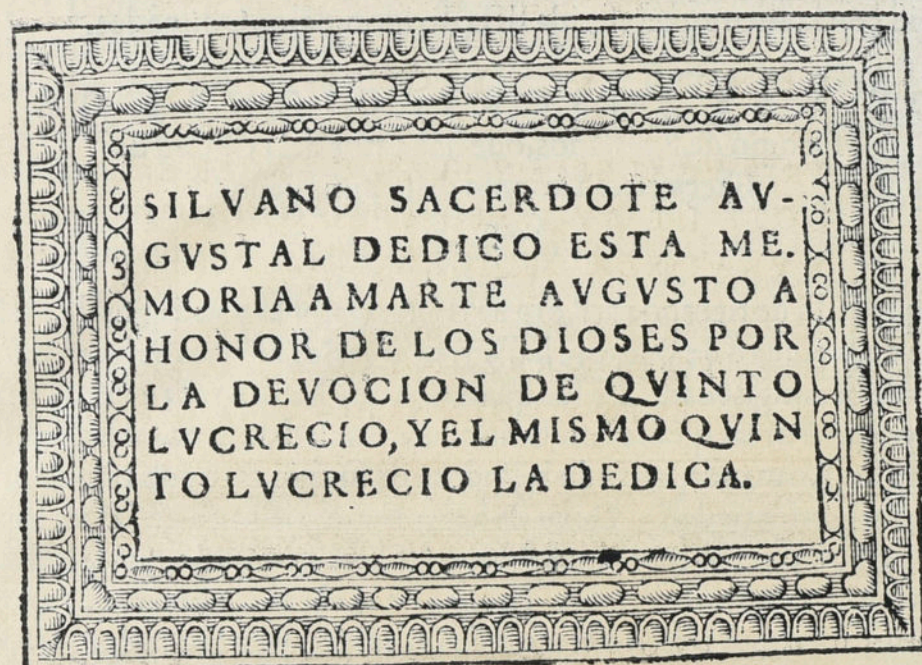 SILVANO SACERDOTE AV-
GVSTAL DEDICO ESTA ME.
MORIA A MARTE AVGVSTO A
HONOR DE LOS DIOSES POR
LA DEVOCION DE QVINTO
LVCRECIO, Y EL MISMO QVIN
TO LVCRECIO LA DEDICA.